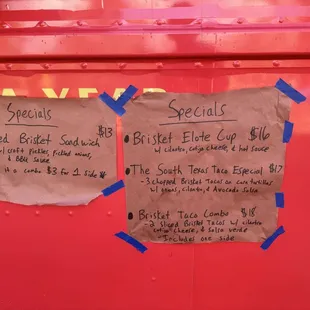 A YEAR
Specials
ed Brisket Sandwich $13
w/ craft pickles, pickled onions,
& BBQ Sauce
it a combo $3 for 1 side
Specials
• Brisket Elote Cup $16
w/ cilantro, cotija cheese, & hot sauce
• The South Texas Taco Especial $17
- 3 chopped Brisket Tacos on corn tortillas
w/ onions, cilantro, & Avocado Salsa
• Brisket Taco Combo $18
- 2 sliced Brisket Tacos w/ cilantro
cotija cheese, & salsa verde
- Includes one side